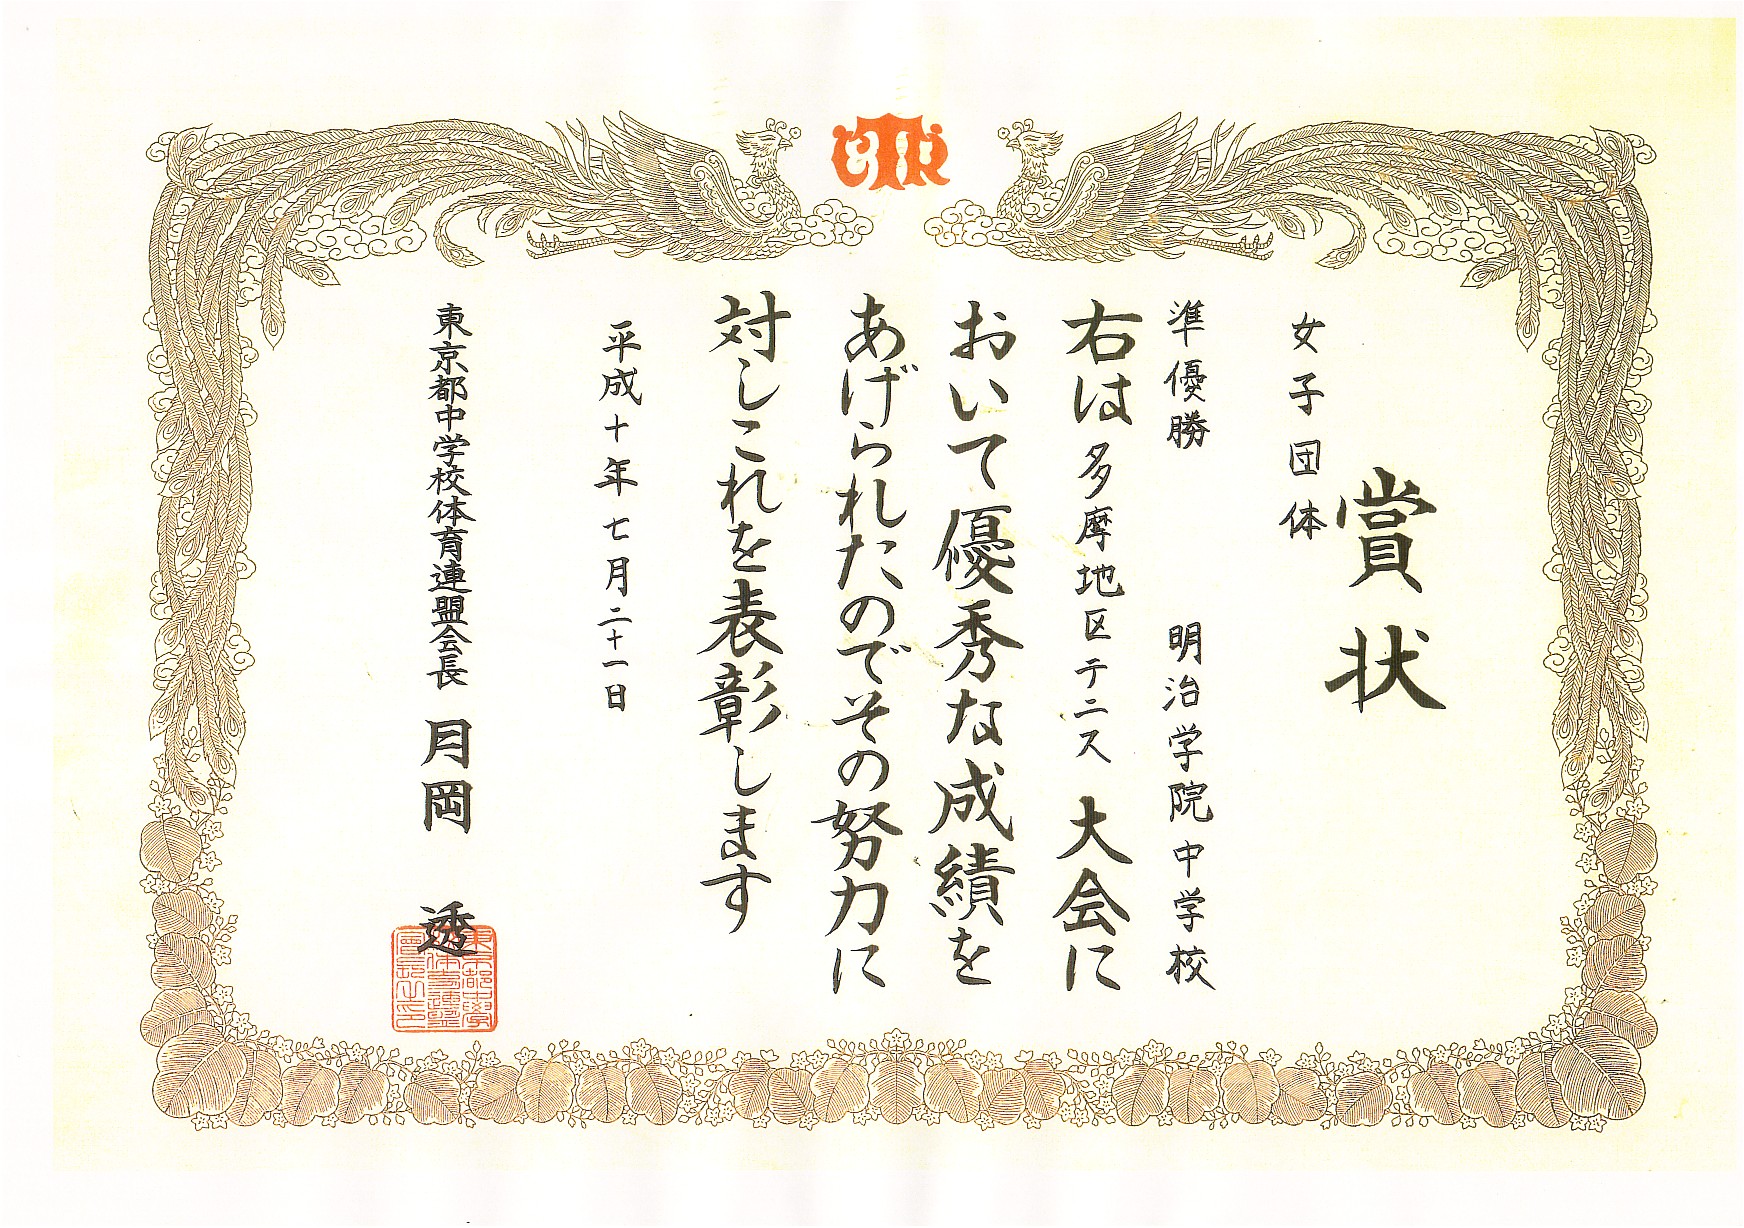 賞状
女子団体
準優勝 明治学院中学校
右は多摩地区テニス大会に
おいて優秀な成績を
あげられたのでその努力に
対しこれを表彰します
平成十年七月二十一日
東京都中学校体育連盟会長 月岡 透